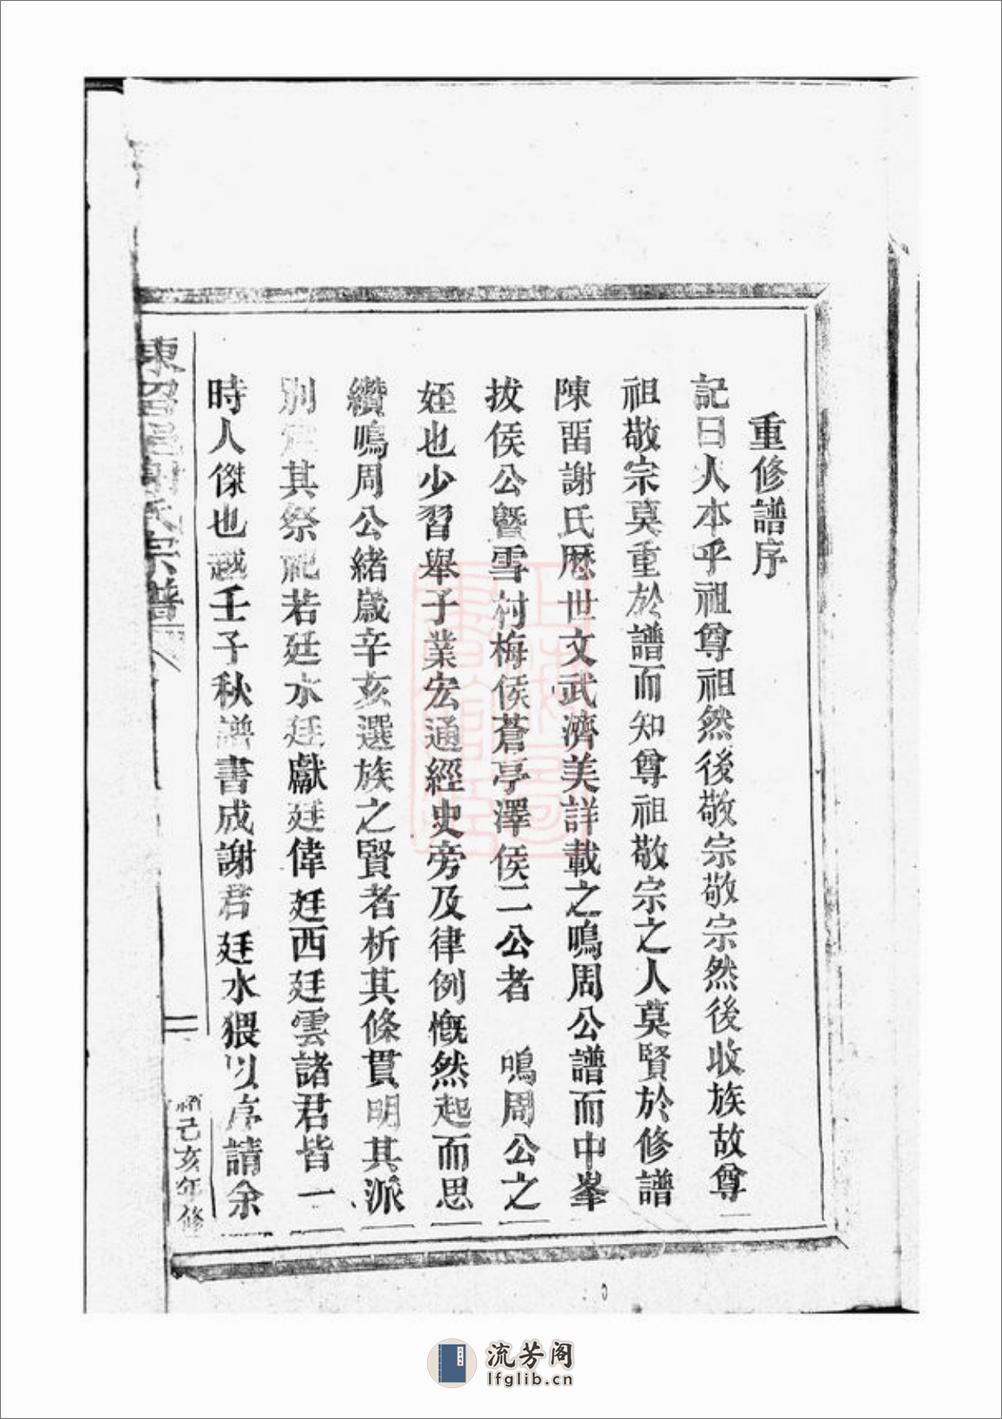 重修譜序
記曰人本乎祖尊祖然後敬宗敬宗然後收族故尊
祖敬宗莫重於譜而知尊祖敬宗之人莫賢於修譜
陳畱謝氏歷世文武濟美詳載之鳴周公譜而中峯
拔侯公曁雪村梅侯蒼亭澤侯二公者 鳴周公之
姪也少習舉子業宏通經史旁及律例慨然起而思
纘鳴周公緒歲辛亥選族之賢者析其條貫明其派
別 其祭祀若廷水廷獻廷偉廷西廷雲諸君皆一
時人傑也越壬子秋譜書成謝君廷水猥以序請余
東 邑謝氏宗譜
二
己亥年修
流芳阁
lfglib.cn